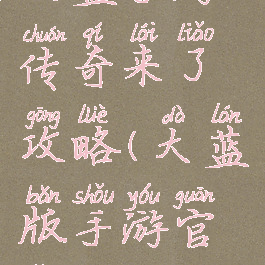 chuán qí lái liǎo
传奇来了
gōng lüè dà lán
攻略(大蓝
bǎn shǒu yóu guān
版手游官